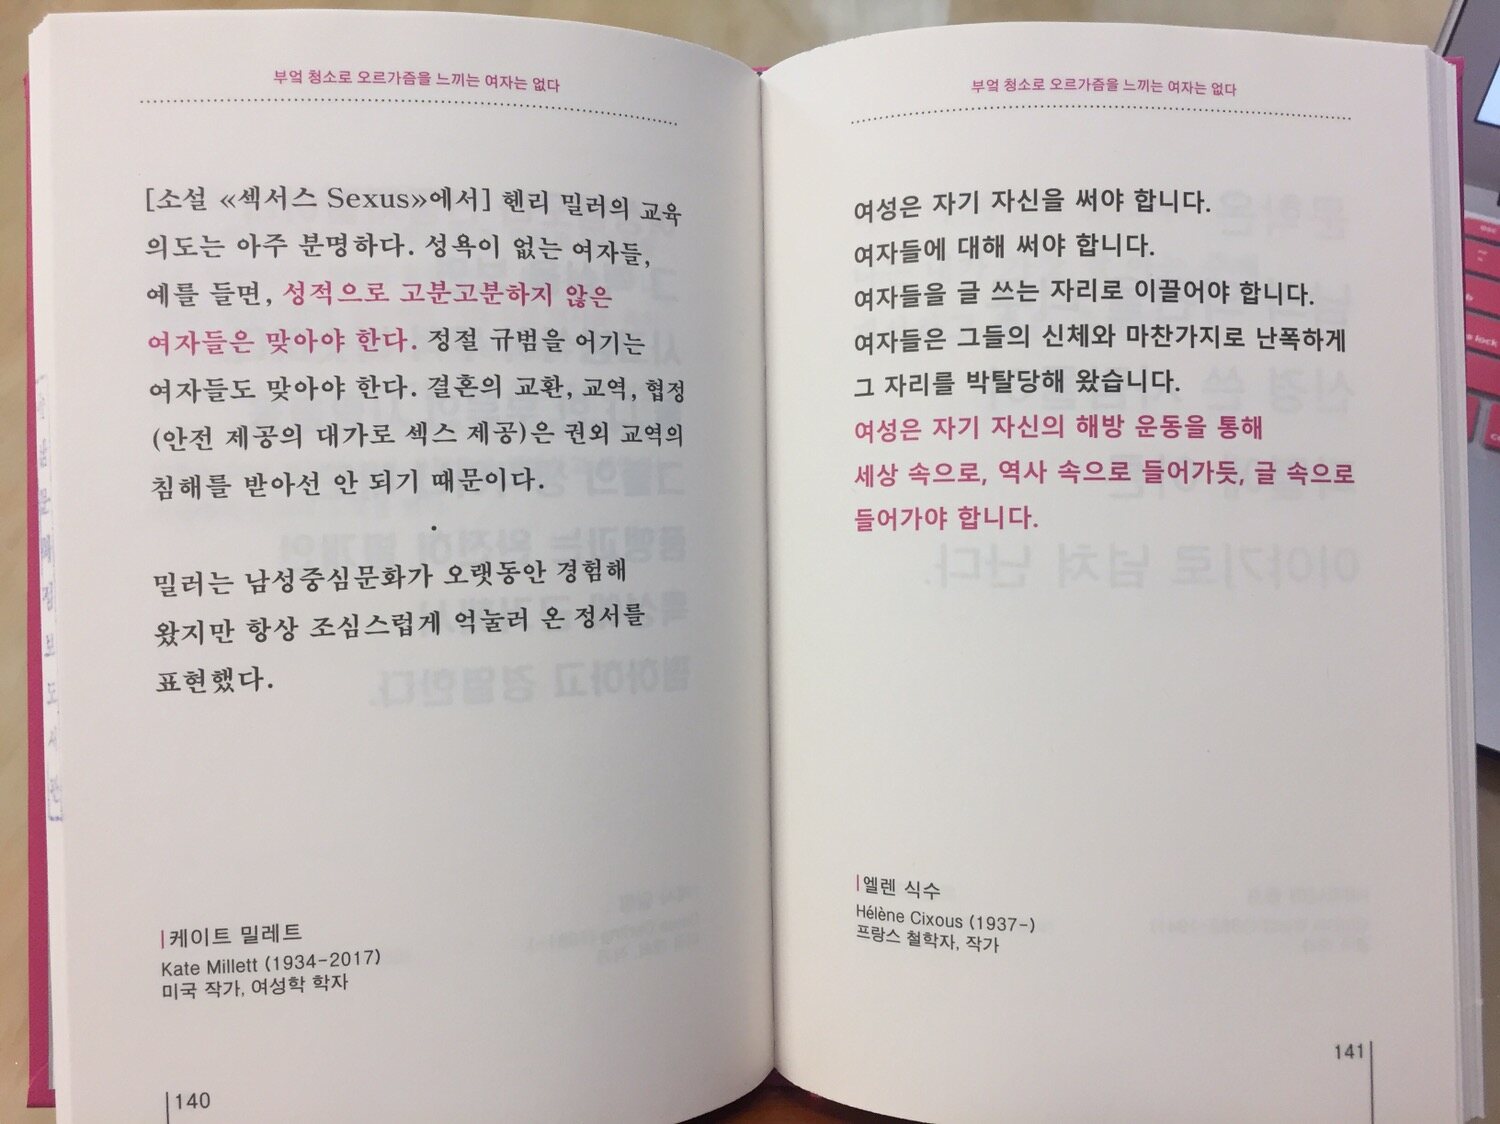 부엌 청소로 오르가즘을 느끼는 여자는 없다
[소설 «섹서스 Sexus»에서] 헨리 밀러의 교육
의도는 아주 분명하다. 성욕이 없는 여자들,
예를 들면, 성적으로 고분고분하지 않은
여자들은 맞아야 한다. 정절 규범을 어기는
여자들도 맞아야 한다. 결혼의 교환, 교역, 협정
(안전 제공의 대가로 섹스 제공)은 권외 교역의
침해를 받아선 안 되기 때문이다.
밀러는 남성중심문화가 오랫동안 경험해
왔지만 항상 조심스럽게 억눌러 온 정서를
표현했다.
케이트 밀레트
Kate Millett (1934-2017)
미국 작가, 여성학 학자
140
부엌 청소로 오르가즘을 느끼는 여자는 없다
여성은 자기 자신을 써야 합니다.
여자들에 대해 써야 합니다.
여자들을 글 쓰는 자리로 이끌어야 합니다.
여자들은 그들의 신체와 마찬가지로 난폭하게
그 자리를 박탈당해 왔습니다.
여성은 자기 자신의 해방 운동을 통해
세상 속으로, 역사 속으로 들어가듯, 글 속으로
들어가야 합니다.
엘렌 식수
Hélène Cixous (1937-)
프랑스 철학자, 작가
141